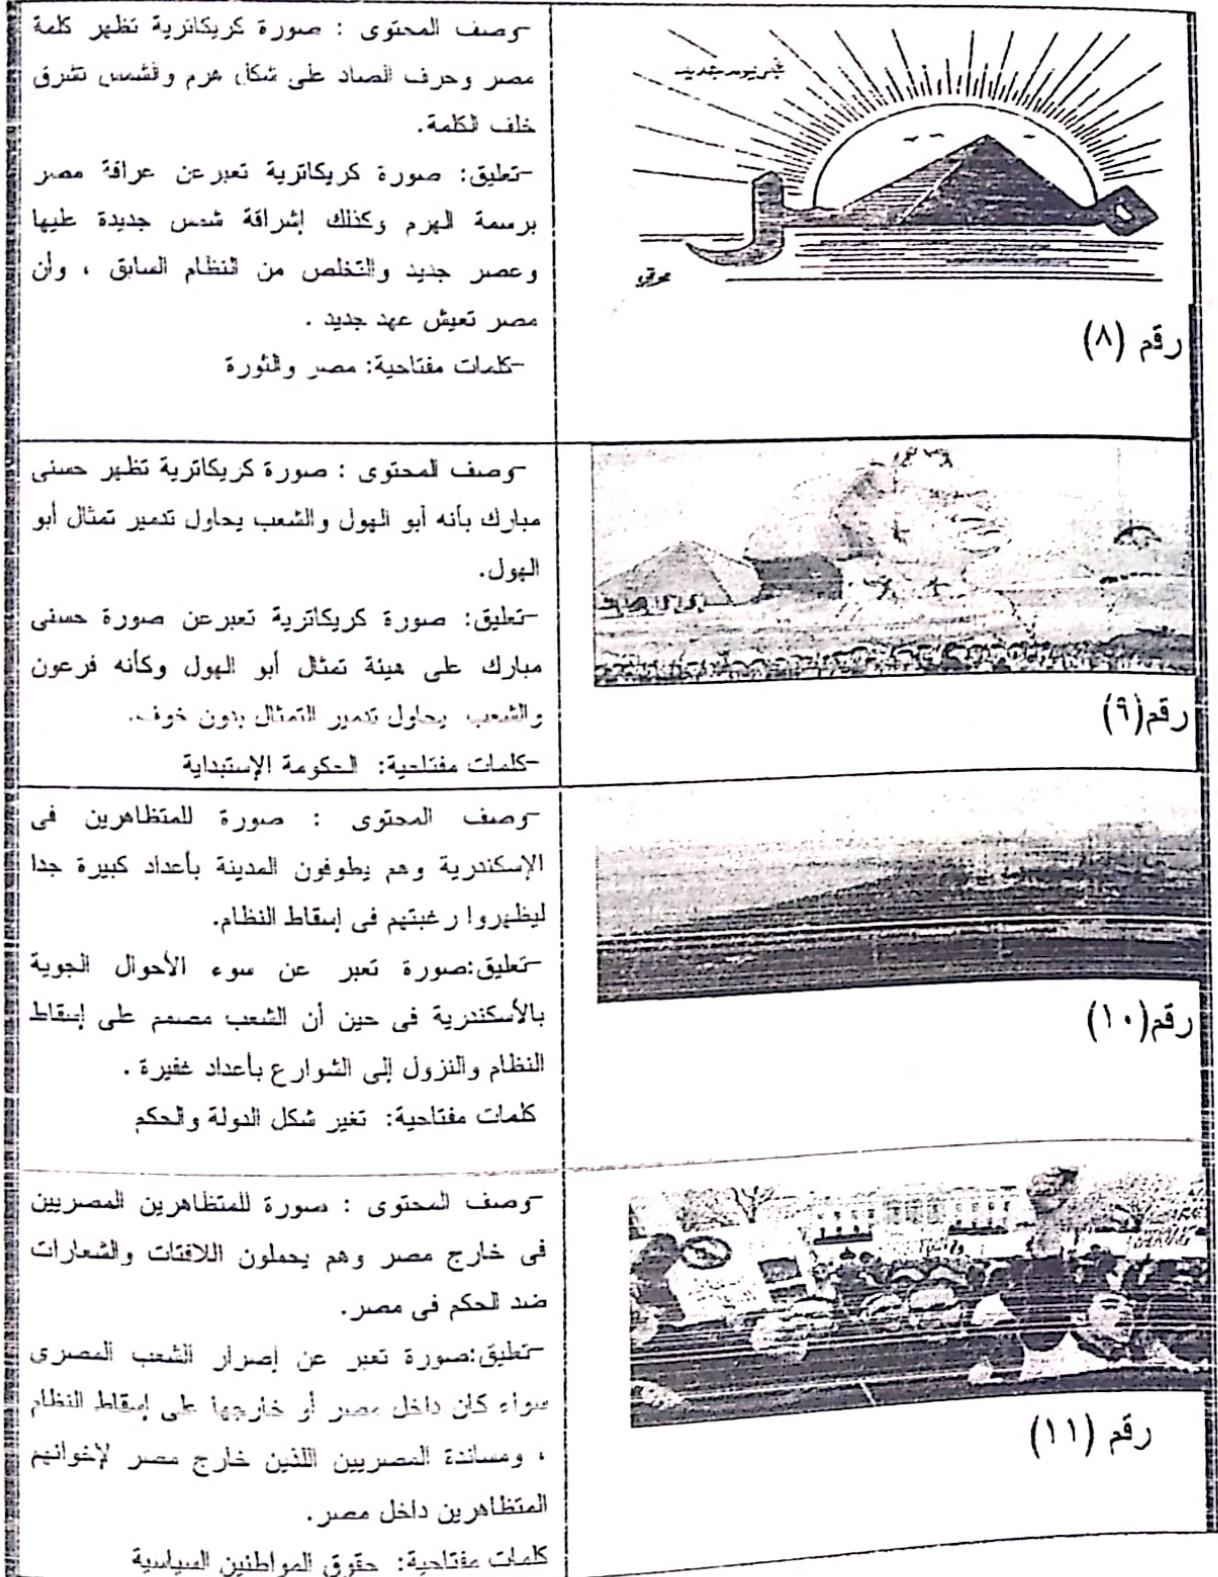 رقم (٨)
-وصف المحتوى : صورة كريكاترية تظهر كلمة
مصر وحرف الصاد على شكل هرم والشمس تشرق
خلف الكلمة.
-تعليق: صورة كريكاترية تعبرعن عراقة مصر
برسمة الهرم وكذلك إشراقة شمس جديدة عليها
وعصر جديد والتخلص من النظام السابق ، وأن
مصر تعيش عهد جديد .
-كلمات مفتاحية: مصر والثورة
رقم(٩)
-وصف المحتوى : صورة كريكاترية تظهر حسنى
مبارك بأنه أبو الهول والشعب يحاول تدمير تمثال أبو
الهول.
-تعليق: صورة كريكاترية تعبرعن صورة حسنى
مبارك على هيئة تمثال أبو الهول وكأنه فرعون
والشعب يحاول تدمير التمثال بدون خوف.
-كلمات مفتاحية: الحكومة الإستبداية
رقم(١٠)
-وصف المحتوى : صورة للمتظاهرين فى
الإسكندرية وهم يطوفون المدينة بأعداد كبيرة جدا
ليظهروا رغبتهم فى إسقاط النظام.
-تعليق:صورة تعبر عن سوء الأحوال الجوية
بالأسكندرية فى حين أن الشعب مصمم على إسقاط
النظام والنزول إلى الشوارع بأعداد غفيرة .
كلمات مفتاحية: تغير شكل الدولة والحكم
رقم (١١)
-وصف المحتوى : صورة للمتظاهرين المصريين
فى خارج مصر وهم يحملون اللافتات والشعارات
ضد الحكم فى مصر.
-تعليق:صورة تعبر عن إصرار الشعب المصرى
سواء كان داخل مصر أو خارجها على إسقاط النظام
، ومساندة المصريين اللذين خارج مصر لإخوانهم
المتظاهرين داخل مصر.
كلمات مفتاحية: حقوق المواطنين السياسية